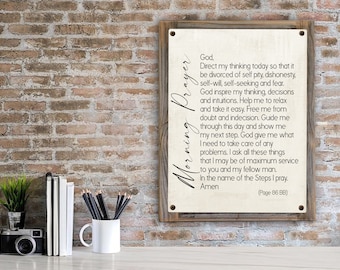 Morning Prayer
God,
Direct my thinking today so that it
be divorced of self pity, dishonesty,
self-will, self-seeking and fear.
God inspire my thinking, decisions
and intuitions. Help me to relax
and take it easy. Free me from
doubt and indecision. Guide me
through this day and show me
my next step. God give me what
I need to take care of any
problems. I ask all these things
that I may be of maximum service
to you and my fellow man.
In the name of the Steps I pray.
Amen
(Page 86 BB)